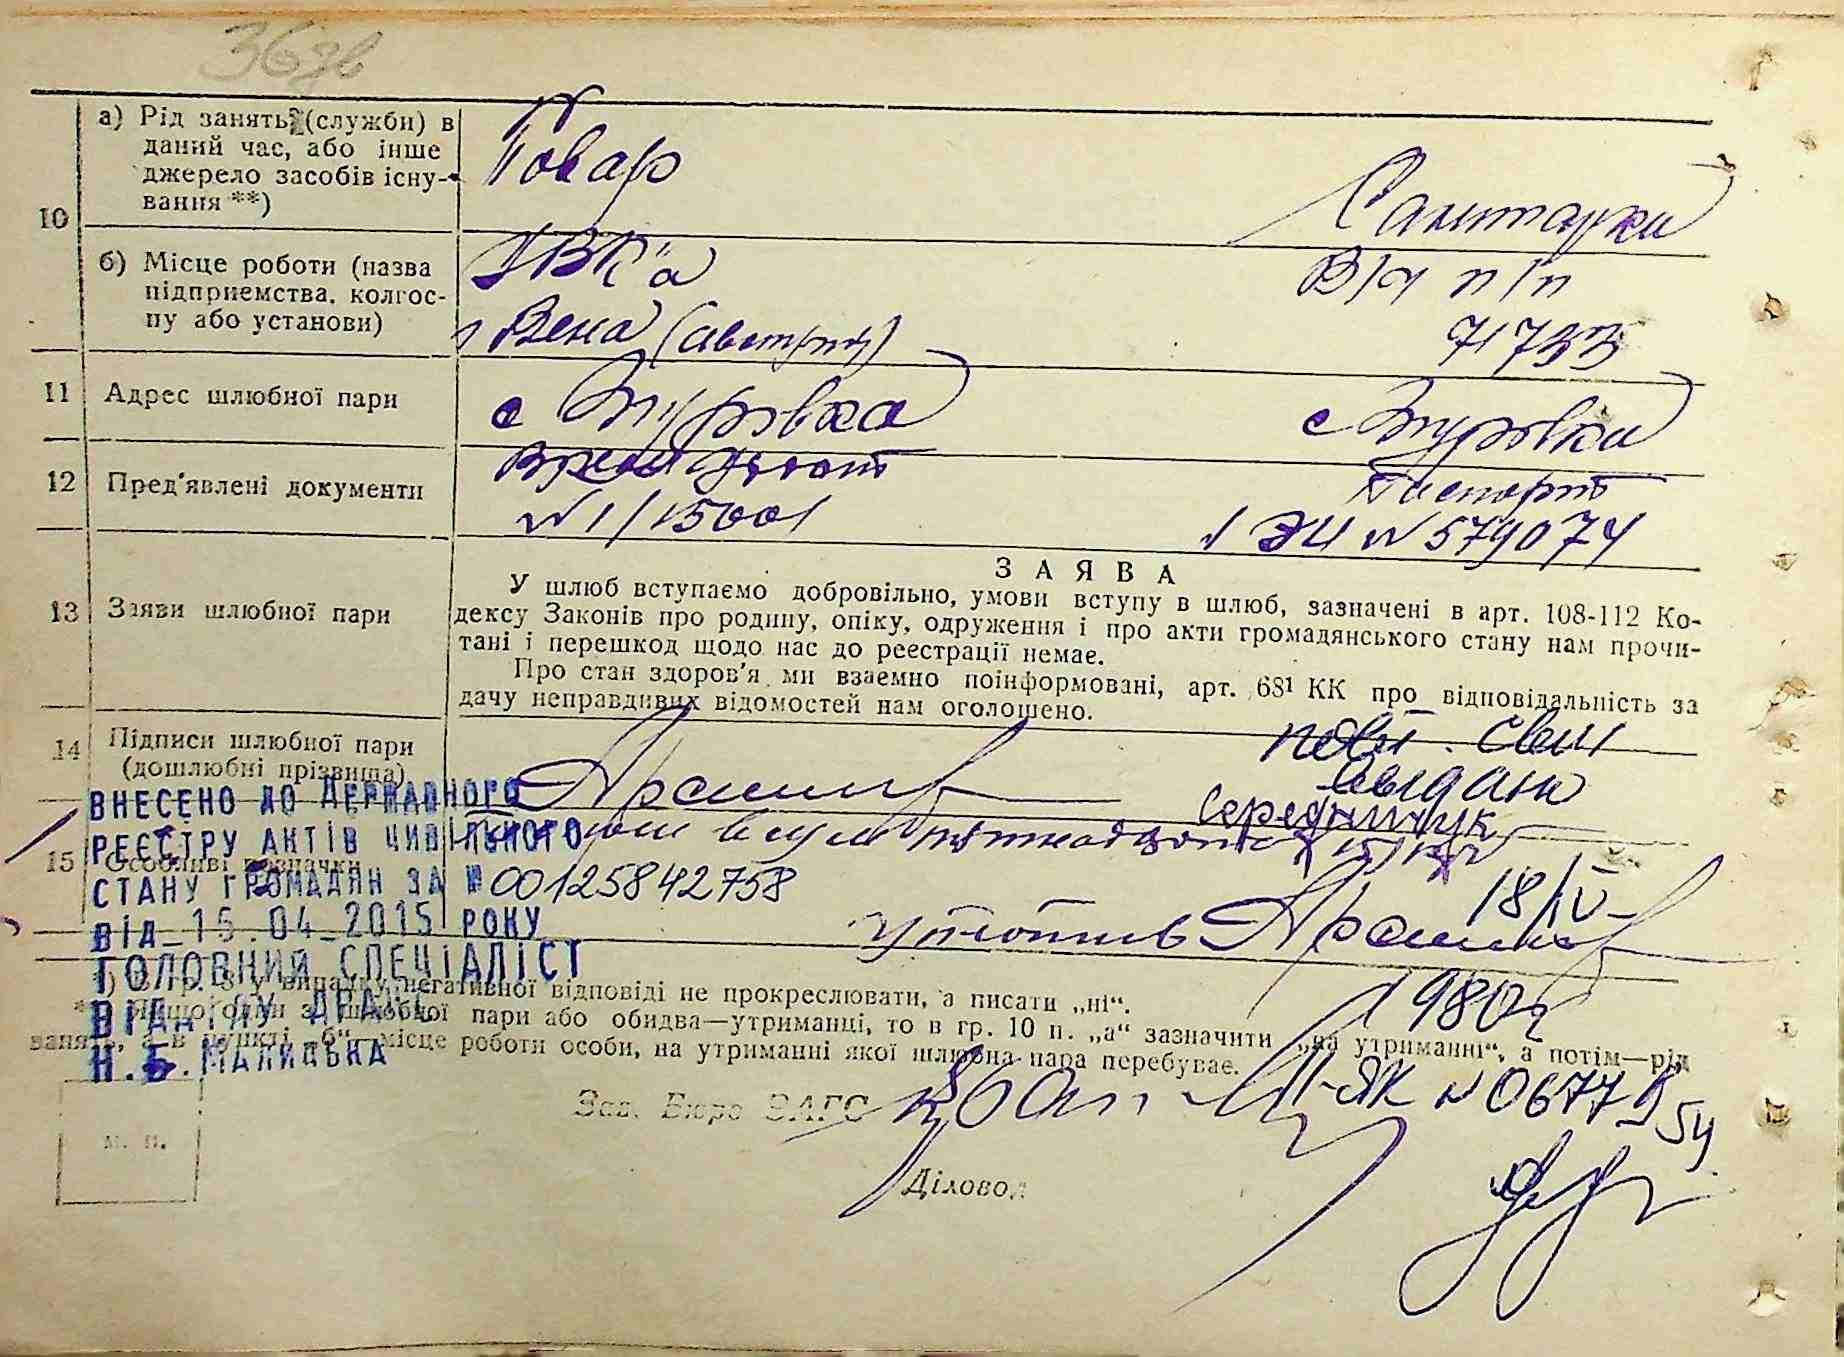 36 зв
10
а) Рід занять (служби) в даний час, або інше джерело засобів існування **)
Повар
Санитарка
б) Місце роботи (назва підприємства, колгоспу або установи)
УВК'а
Вена (австрия)
В/ч п/п
71733
11 Адрес шлюбної пари
с Згуровка
с Згуровка
12 Пред'явлені документи
№ 1/15001
Паспорт
№ 579074
13 Заяви шлюбної пари
ЗАЯВА
У шлюб вступаємо добровільно, умови вступу в шлюб, зазначені в арт. 108-112 Ко-
дексу Законів про родину, опіку, одруження і про акти громадянського стану нам прочи-
тані і перешкод щодо нас до реєстрації немає.
Про стан здоров'я ми взаємно поінформовані, арт. 68¹ КК про відповідальність за
дачу неправдивих відомостей нам оголошено.
14 Підписи шлюбної пари
(дошлюбні прізвища)
повт. свид
выдано
Середничук
15 Особливі позначки
18/IV-
1980г
II-ЯК № 067795
54
ВНЕСЕНО ДО ДЕРЖАВНОГО
РЕЄСТРУ АКТІВ ЦИВІЛЬНОГО
СТАНУ ГРОМАДЯН ЗА № 00125842758
ВІД 15.04.2015 РОКУ
ГОЛОВНИЙ СПЕЦІАЛІСТ
ВІДДІЛУ ДРАЦС
Н.Б. МАЛИЦЬКА
*) В гр. 8 у випадку негативної відповіді не прокреслювати, а писати „ні“.
**) Якщо один з шлюбної пари або обидва—утриманці, то в гр. 10 п. „а“ зазначити „на утриманні“, а потім—рід
занять, а в пункті „б“—місце роботи особи, на утриманні якої шлюбна пара перебуває.
Зав. Бюро ЗАГС
Діловод
М. П.